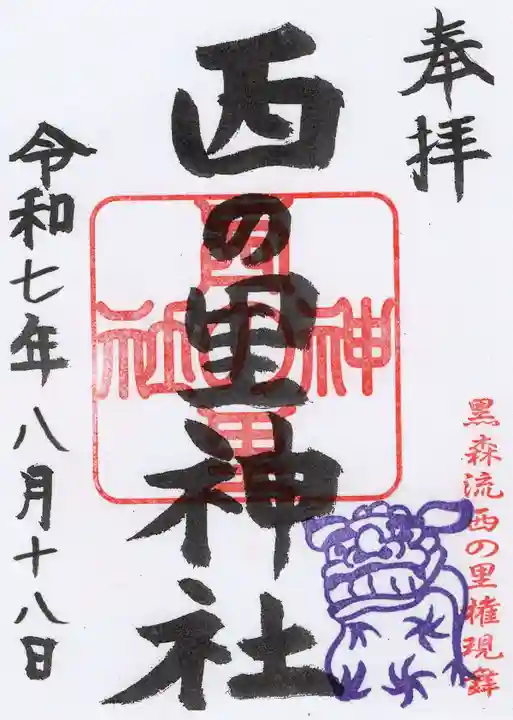 奉拝
西の里神社
西の里
神社
令和七年八月十八日
黒森流西の里権現舞